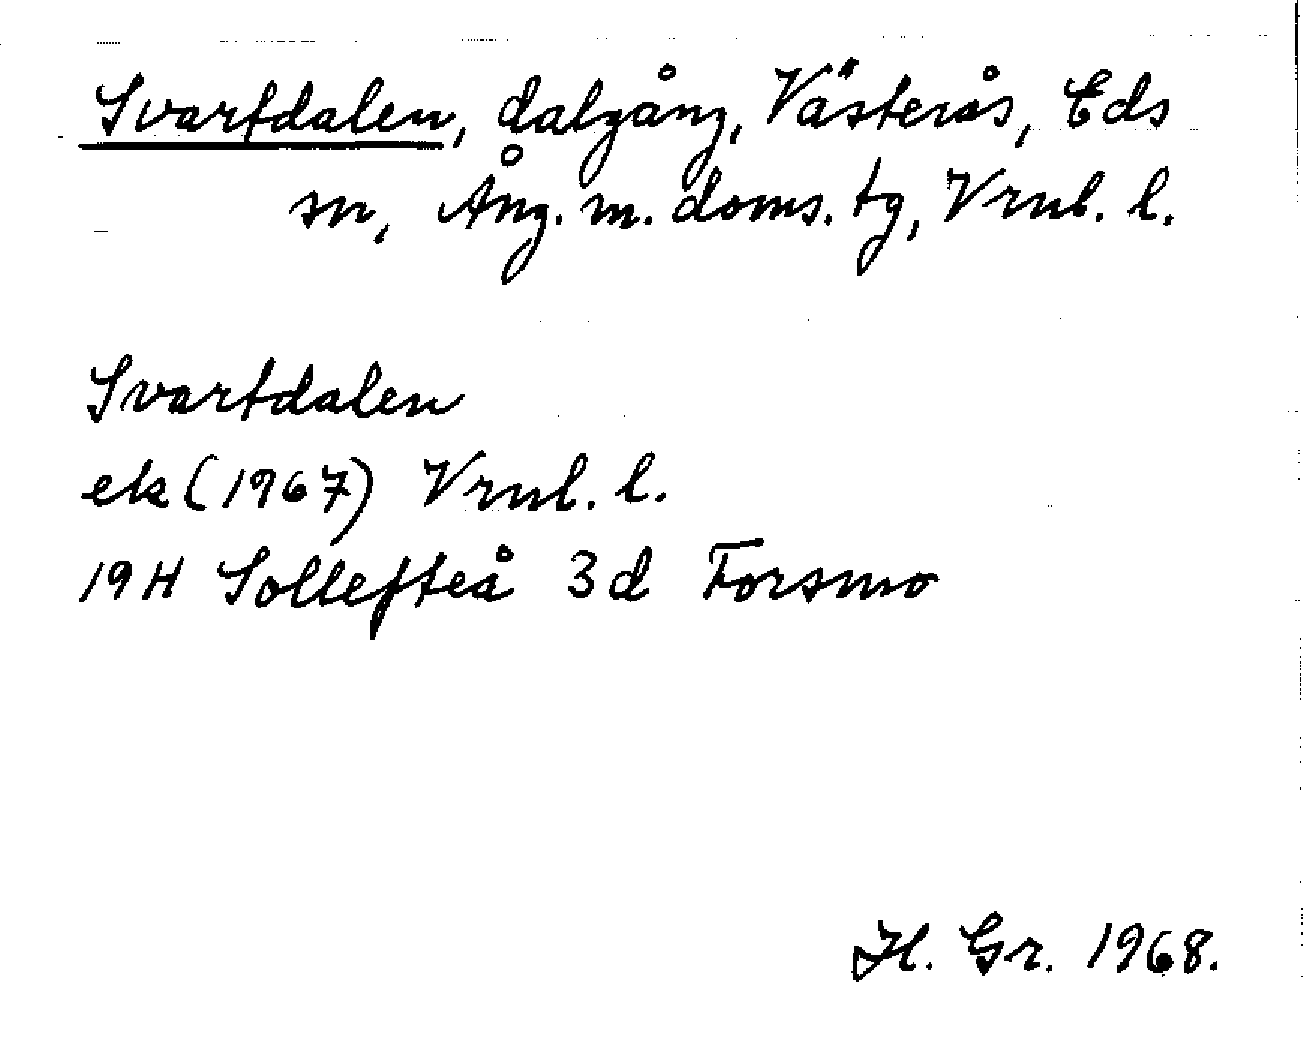 Svartdalen, dalgång, Västerås, Eds
sn, Ång. m. doms. tg, Vrnl. l.
Svartdalen
ek (1967) Vrnl. l.
19H Sollefteå 3d Forsmo
H. Gr. 1968.